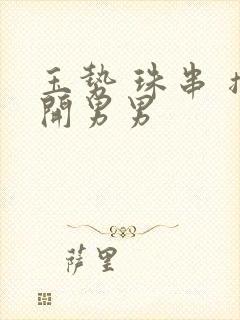 玉势 珠串
開男男
萨里